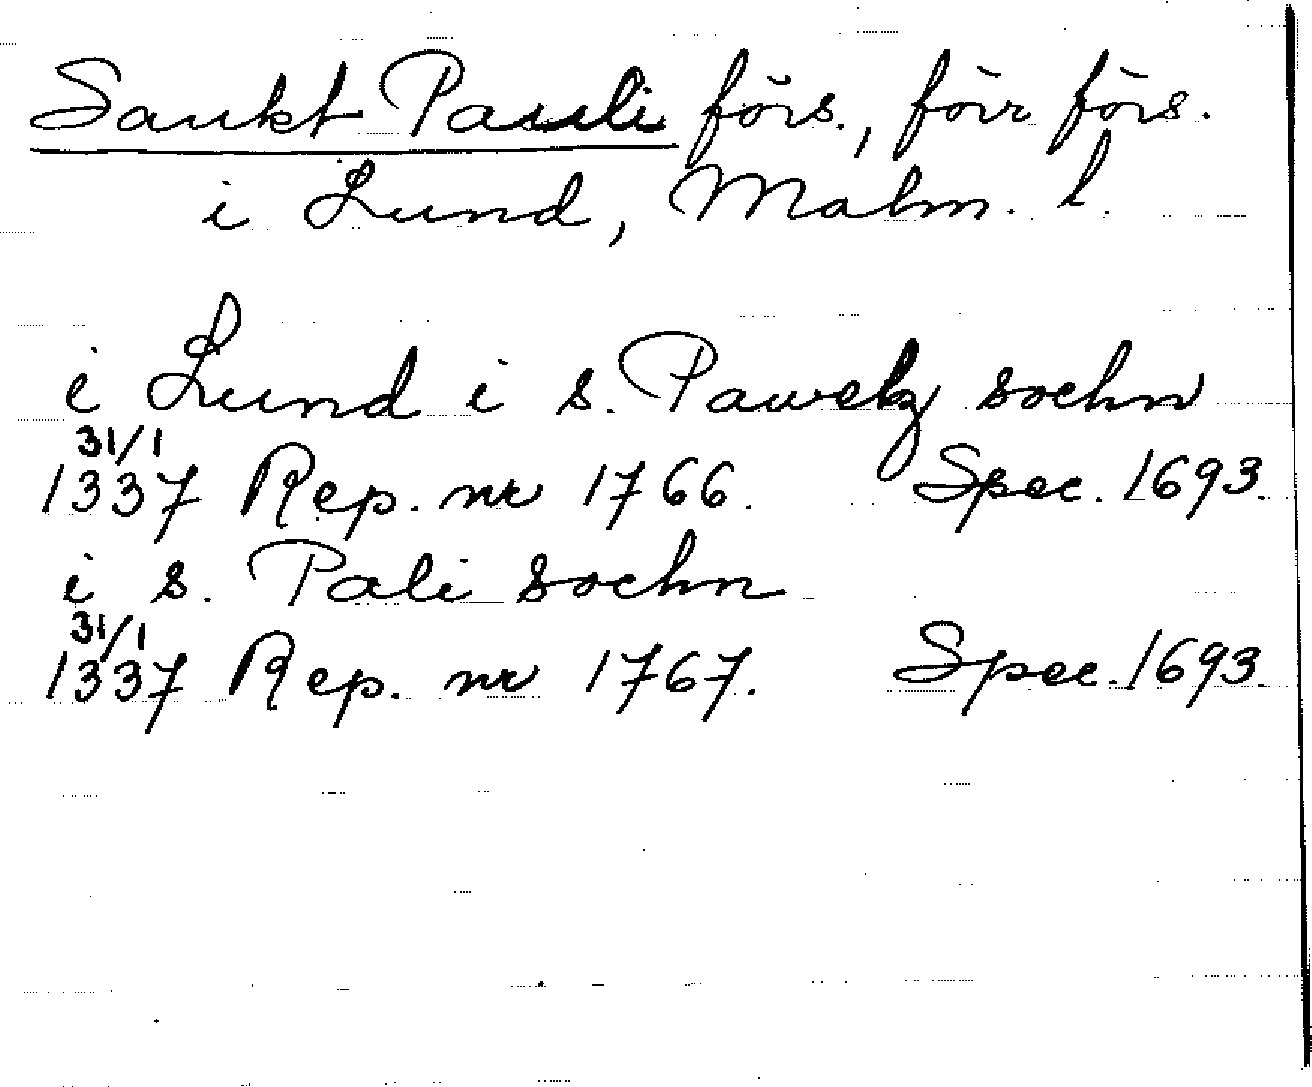 Sankt Pauli förs., förr förs.
i Lund, Malm. l.
i Lund i s. Pawelz soehn
31/1
1337 Rep. nr 1766. Spec. 1693.
i s. Pali soehn
31/1
1337 Rep. nr 1767. Spec. 1693.